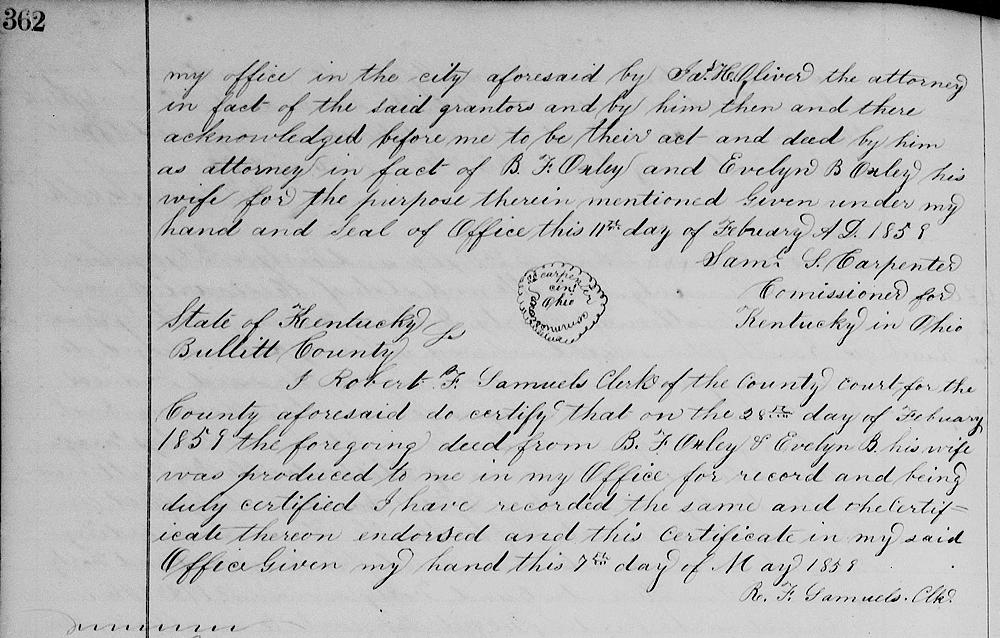 362
my office in the city aforesaid by Jas. H. Oliver the attorney
in fact of the said grantors and by him then and there
acknowledged before me to be their act and deed by him
as attorney in fact of B. F. Oxley and Evelyn B Oxley his
wife for the purpose therein mentioned Given under my
hand and Seal of Office this 11th day of Febuary A D. 1859
Saml. S. Carpenter
Comissioner for
Kentucky in Ohio
Carpenter
cin.
Ohio
State of Kentucky
Bullitt County
I Robert F. Samuels Clerk of the County court for the
County aforesaid do certify that on the 28th day of Febuary
1859 the foregoing deed from B. F. Oxley & Evelyn B. his wife
was produced to me in my Office for record and being
duly certified I have recorded the same and the Certif=
icate thereon endorsed and this certificate in my said
Office Given my hand this 7th day of May 1859
Ro. F. Samuels. Clk.